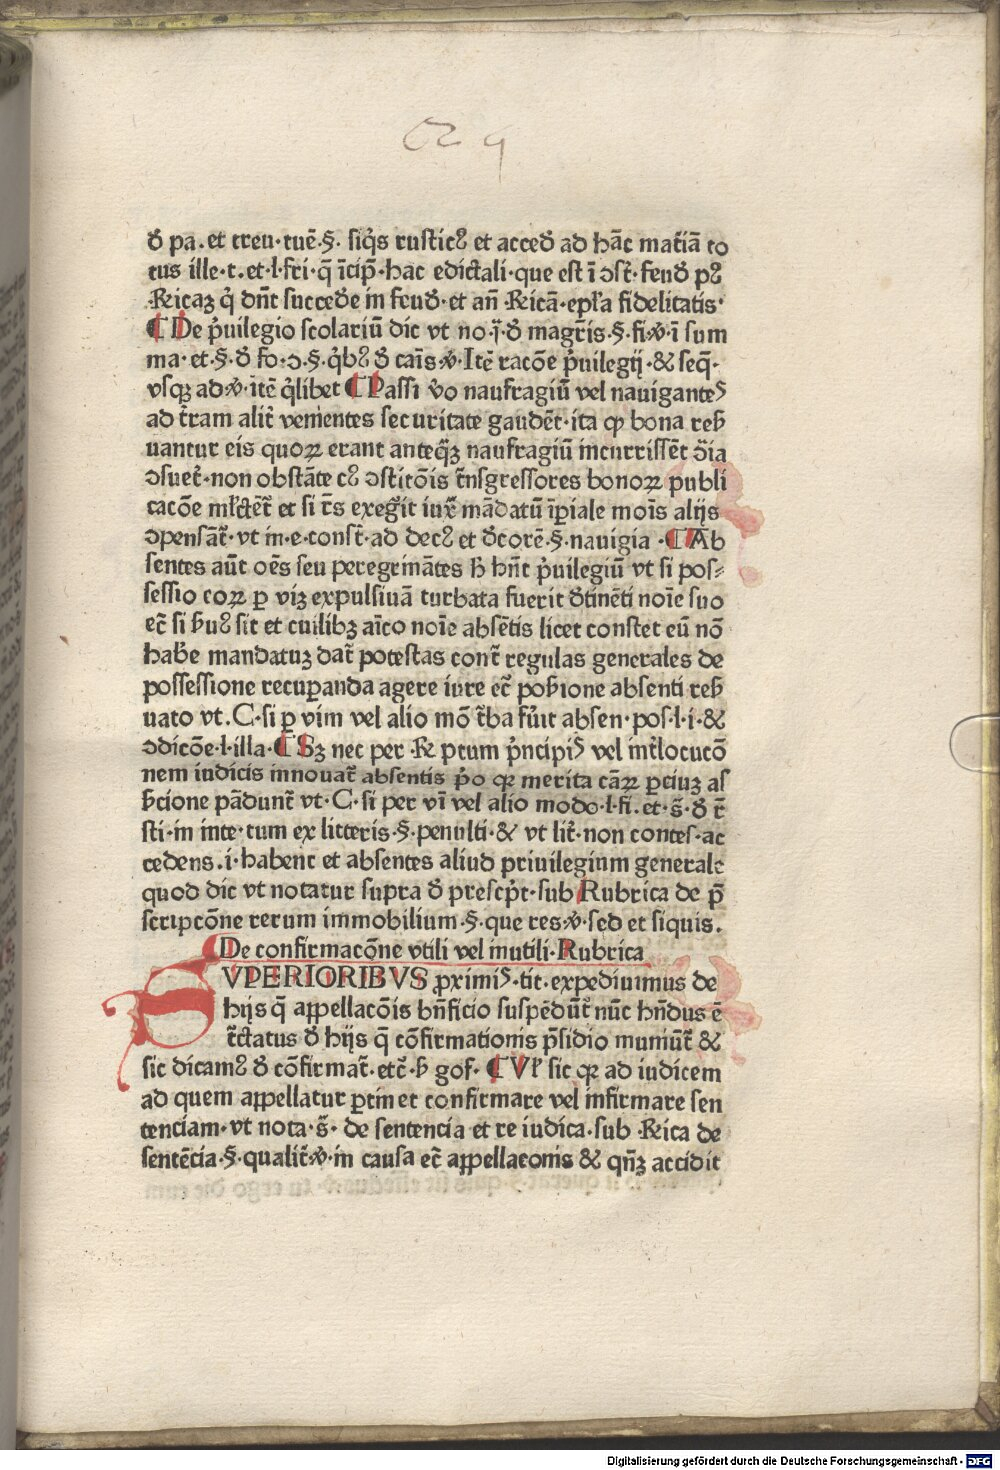 đ pa. et treu· tuē·§· siq̇s rusticꝰ et acceđ ad hāc matiā to
tus ille·t·et·l·fri·q̄ īcip̄·hac edictali·que est ī ꝯst̄·feuđ pꝰ
Ricaꝫ q̇ dn̄t succeđe in feuđ·et an̄ Ricā·epl̄a fidelitatis·
¶ De ṗuilegio scolariū dic vt no·j̄·đ magr̄is·§·fi·v̇·ī sum
ma·et·§·đ fo·ꝯ·§·q̇bꝰ đ cais·v̇·Itē racōe ṗuilegij·& seq̄·
vsqꝫ ad·v̇·itē q̇libet ¶ Passi v̇o naufragiū vel nauigantes
ad t̄ram alit̄ venientes securitate gaudēt·ita ꝙ bona reẜ
uantur eis quoꝝ erant anteq̄ꝫ naufragiū incurrissēt ꝺ̄ia
ꝯsuet̄·non obstāte cꝰ ꝯstitōis t̄nsgressores bonoꝝ publi
cacōe ml̄ctet̄ et si t̄s exeg̃it iux̄ mādatū īꝑiale mōis alijs
ꝯpensāt̄·vt in·e·const̄·ad decꝰ et đcorē·§·nauigia·¶ Ab
sentes aūt oēs seu peregrinātes ħ hn̄t ṗuilegiū vt si pos⸗
sessio eoꝝ ꝑ viꝫ expulsiuā turbata fuerit đtinēti noīe suo
ec̄ si ẜuꝰ sit et cuilibꝫ aīco noīe absētis licet constet eū nō
habē mandatuꝫ dat̄ potestas cont̄ regulas generales de
possessione recuꝑanda agere iure ec̄ poẜione absenti reẜ
uato vt·C·si ꝑ vim vel alio mō t̄ba fu̇it absen·pos·l·i·&
ꝯdicōe·l·illa·¶ Sꝫ nec per R ptum ṗncipis vel int̄locutō
nem iudicis innouat̄ absentis ṗo ꝙ merita cāꝝ ꝑciuꝫ as
ẜcione pādunt̄ vt·C·si per vī vel alio modo·l·fi·et·s̄·đ t̄
sti·in inte·tum ex litteris·§·penulti·& vt lit̄·non contes·ac
cedens·i·habent et absentes aliud priuilegium generale
quod dic vt notatur supra đ prescp̄t·sub Rubrica de p̄
scripcōne rerum immobilium·§·que res·v̇·sed et siquis.
De confirmacōne vtili vel inutili·Rubrica
SVPERIORIBVS ꝓximis·tit·expediuimus de
hijs q̄ appellacōis bn̄ficio suspēdūt̄ nūc hn̄dus ē
t̄ctatus đ hijs q̄ cōfirmationis p̄sidio muniūt̄ &
sic dicamꝰ đ cōfirmat̄·etc̄·ẜ gof·¶ Vl̄ sic ꝙ ad iudicem
ad quem appellatur ꝑtinet confirmare vel infirmare sen
tenciam·vt nota·s̄·de sentencia et re iudica·sub Rica de
sentēcia·§·qualit̄·v̇·in causa ec̄ appellaconis & qn̄ꝫ accidit
Digitalisierung gefördert durch die Deutsche Forschungsgemeinschaft - DFG